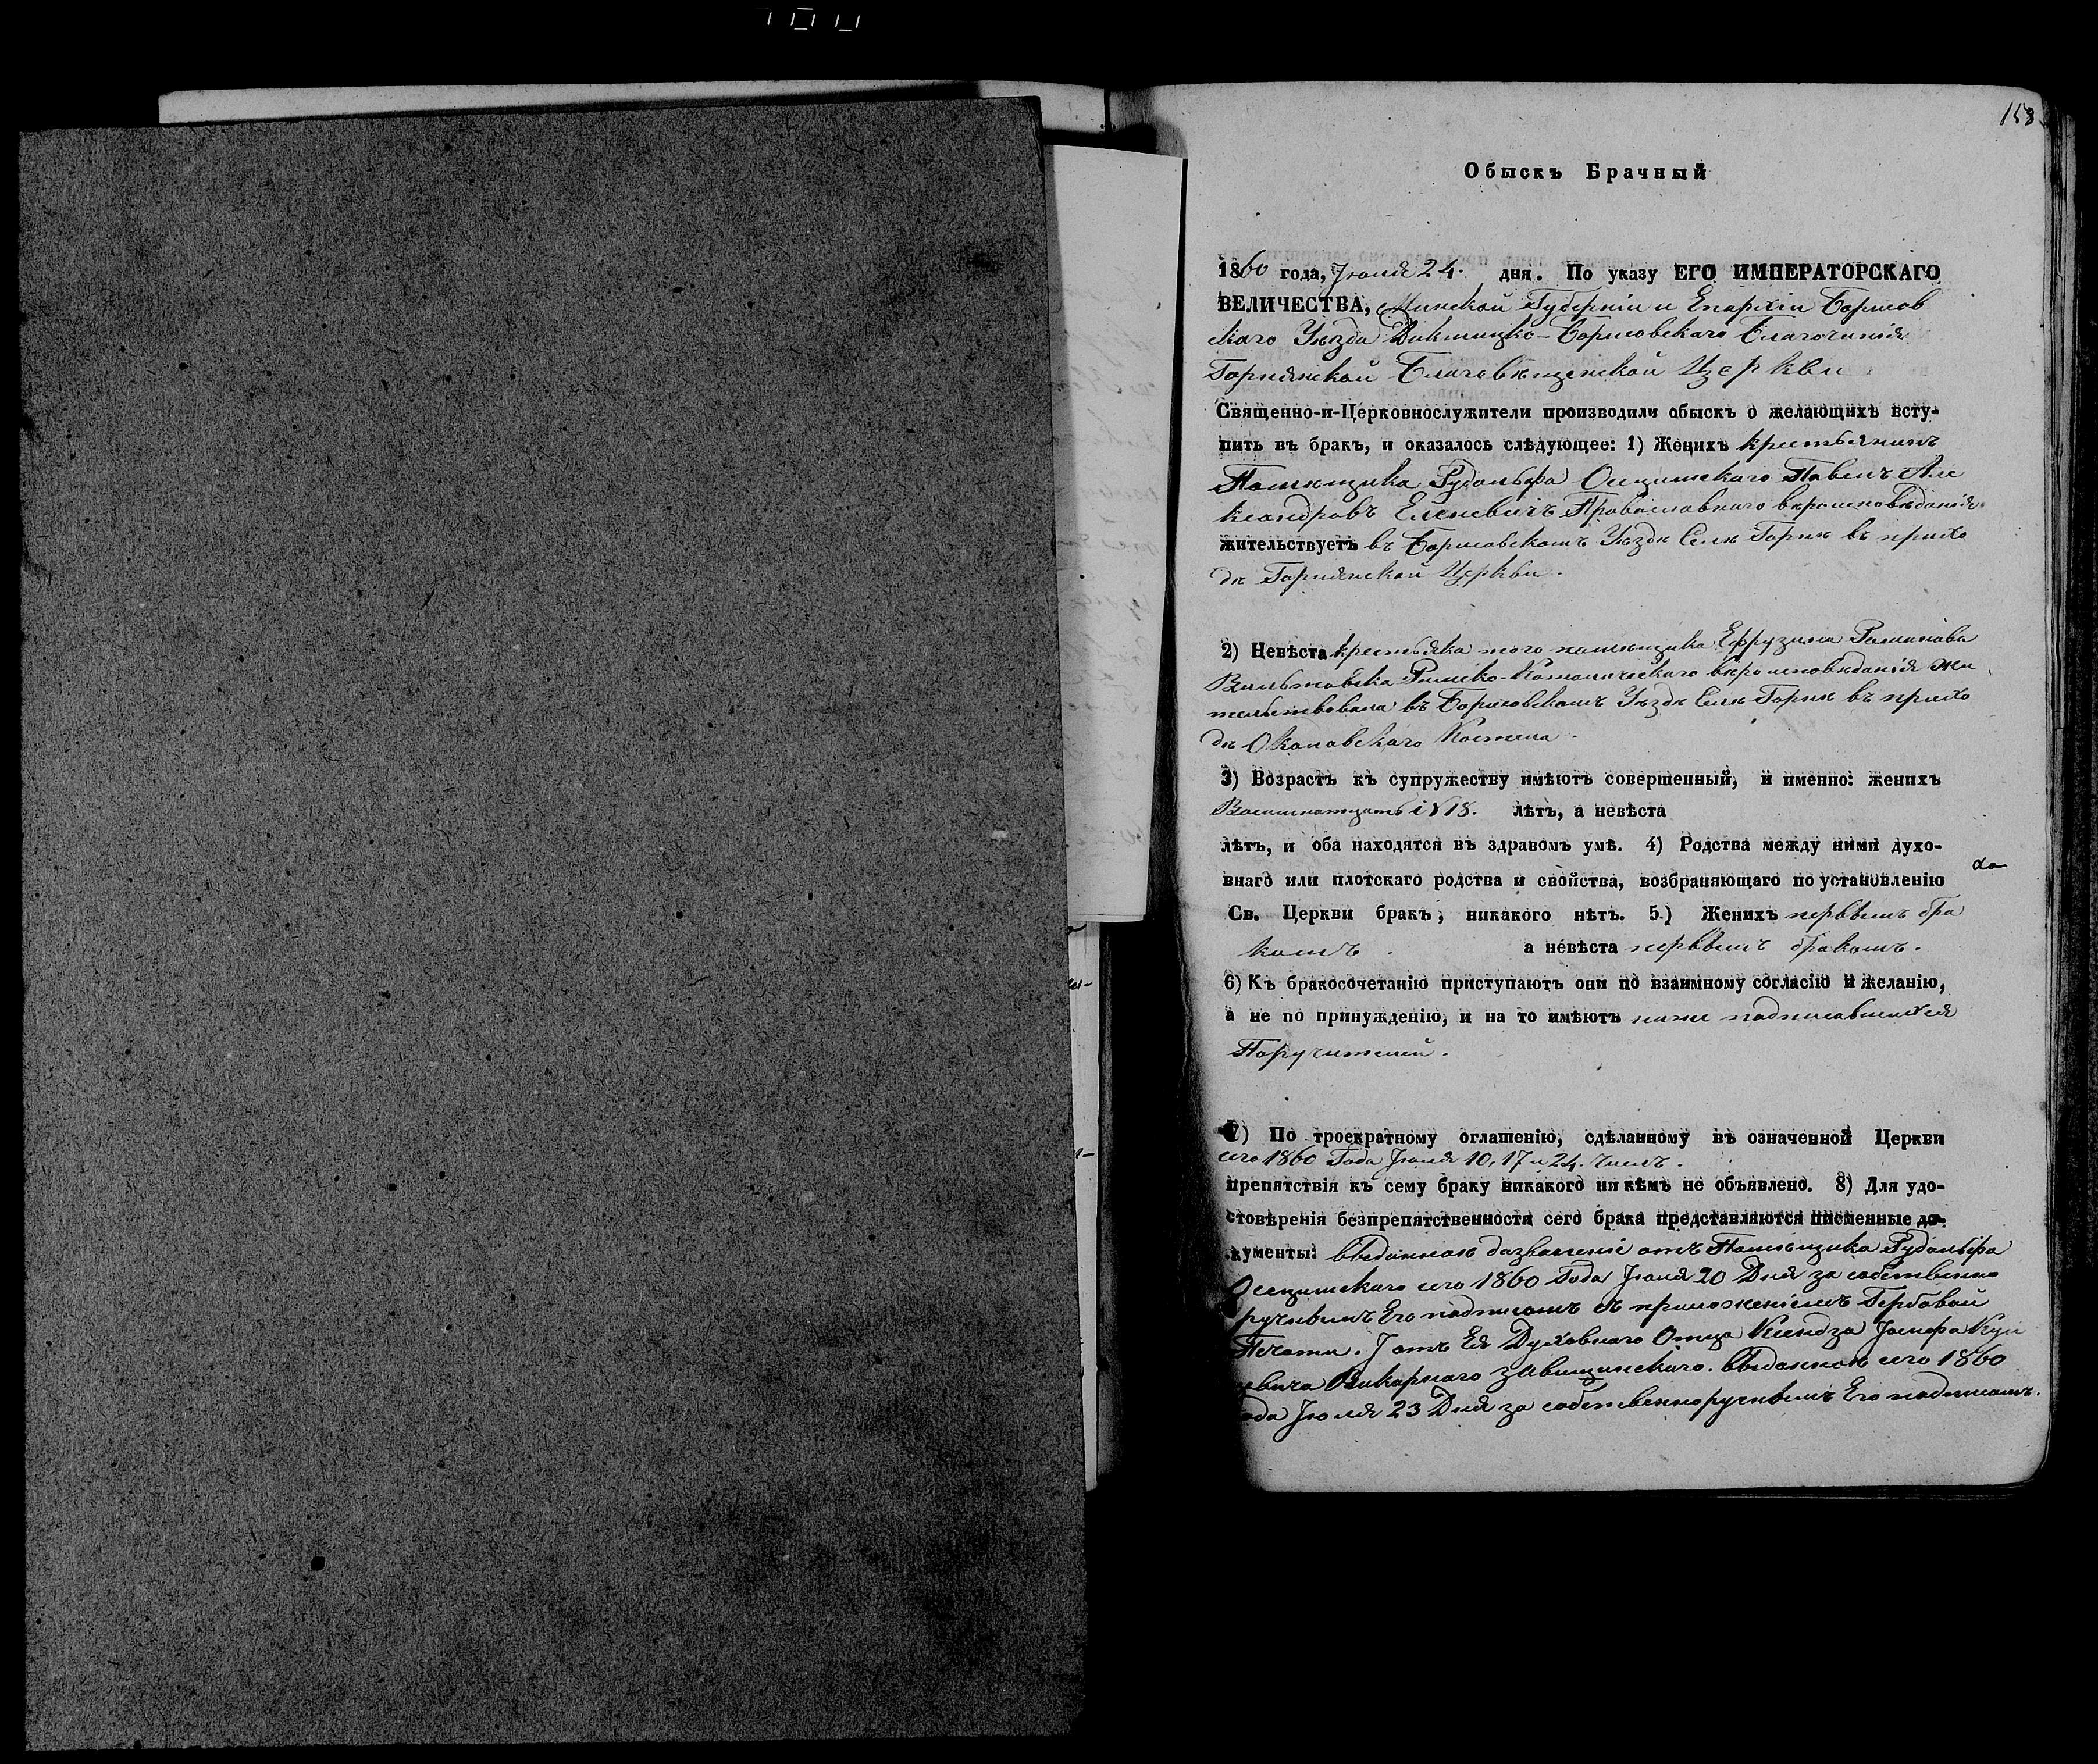 158
Обыскъ Брачный
1860 года, Іюля 24. дня. По указу ЕГО ИМПЕРАТОРСКАГО
ВЕЛИЧЕСТВА, Минской Губерніи и Епархіи Борисов
скаго Уѣзда Докшицко-Борисовскаго Благочинія
Горнянской Благовѣщенской Церкви
Священно-и-Церковнослужители производили обыскъ о желающихъ всту-
пить въ бракъ, и оказалось слѣдующее: 1) Женихъ крестьянинъ
Помѣщика Рудольфа Павелъ Але
ксандровъ Православнаго вѣроисповѣданія
жительствуетъ въ Борисовскомъ Уѣздѣ Селѣ Горнѣ въ прихо
дѣ Горнянской Церкви.
2) Невѣста крестьянка того помѣщика Ефрузина Романова
Римско-Католическаго вѣроисповѣданія жи
тельствовала въ Борисовскомъ Уѣздѣ Селѣ Горнѣ въ прихо
дѣ Околовскаго Костела.
3) Возрастъ къ супружеству имѣютъ совершенный, и именно: женихъ
18. лѣтъ, а невѣста
лѣтъ, и оба находятся въ здравомъ умѣ. 4) Родства между ними духо-
внаго или плотскаго родства и свойства, возбраняющаго по установленію
Св. Церкви бракъ, никакого нѣтъ. 5.) Женихъ первымъ бра
комъ. а невѣста первымъ бракомъ.
6) Къ бракосочетанію приступаютъ они по взаимному согласію и желанію,
а не по принужденію, и на то имѣютъ ниже подписавшихся
Поручителей.
7) По троекратному оглашенію, сдѣланному въ означенной Церкви
сего 1860 Года Іюля 10, 17 и 24. Числъ.
препятствія къ сему браку никакого ни кѣмъ не объявлено. 8) Для удо-
стовѣренія безпрепятственности сего брака представляются писменные до-
кументы: дозволеніе отъ Помѣщика Рудольфа
сего 1860 Года Іюля 20 Дня за собственно
ручнымъ Его подписомъ съ приложеніемъ Гербовой
Печати. І отъ Ея Духовнаго Отца Ксендза Іосифа
Викарнаго сего 1860
ода Іюля 23 Дня за собственноручнымъ Его подписомъ.